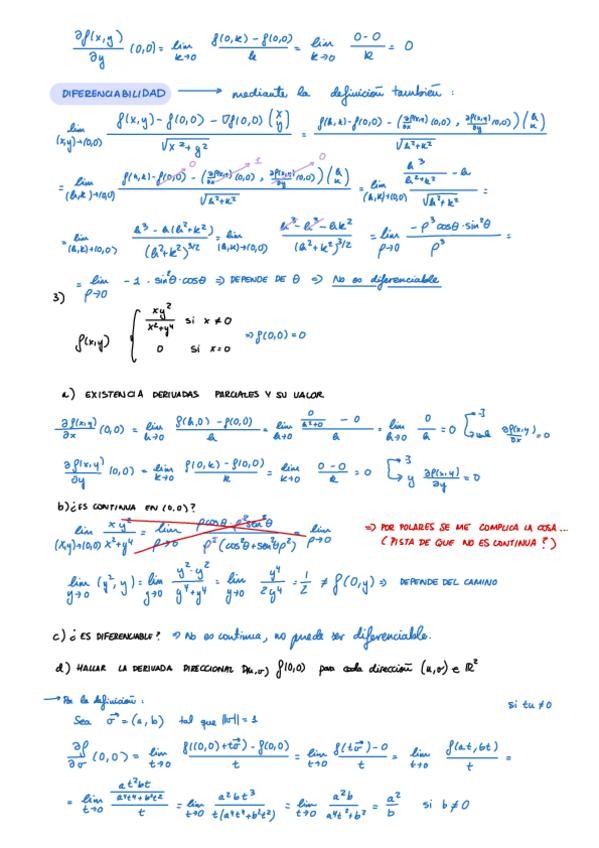 ∂f(x,y)/∂y (0,0) = lim k→0 (f(0,k) - f(0,0))/k = lim k→0 (0-0)/k = 0
DIFERENCIABILIDAD → mediante la definición también:
lim (x,y)→(0,0) (f(x,y) - f(0,0) - ∇f(0,0) (x y))/√(x²+y²) = (f(h,k) - f(0,0) - (∂f(x,y)/∂x (0,0), ∂f(x,y)/∂y (0,0)) (h k))/√(h²+k²)
= lim (h,k)→(0,0) (f(h,k) - f(0,0) - (∂f(x,y)/∂x (0,0), ∂f(x,y)/∂y (0,0)) (h k))/√(h²+k²) = lim (h,k)→(0,0) (h³/(h²+k²) - h)/√(h²+k²) =
= lim (h,k)→(0,0) (h³ - h(h²+k²))/(h²+k²)^3/2 = lim (h,k)→(0,0) (h³ - h³ - hk²)/(h²+k²)^3/2 = lim ρ→0 (-ρ³cosθ·sin²θ)/ρ³ =
= lim ρ→0 -1·sin²θ·cosθ ⇒ DEPENDE DE θ ⇒ No es diferenciable
3)
f(x,y) { xy²/(x²+y⁴) si x≠0
0 si x=0 ⇒ f(0,0)=0
a) EXISTENCIA DERIVADAS PARCIALES Y SU VALOR
∂f(x,y)/∂x (0,0) = lim h→0 (f(h,0) - f(0,0))/h = lim h→0 (0/(h²+0) - 0)/h = lim h→0 0/h = 0 ∂f(x,y)/∂x = 0
∂f(x,y)/∂y (0,0) = lim k→0 (f(0,k) - f(0,0))/k = lim k→0 (0-0)/k = 0 [→∃ y ∂f(x,y)/∂y = 0
b) ¿ES CONTINUA EN (0,0)?
lim (x,y)→(0,0) xy²/(x²+y⁴) = lim ρ→0 (ρcosθ·ρ²sin²θ)/(ρ²(cos²θ+sen⁴θρ²)) = lim ρ→0 ⇒ POR POLARES SE ME COMPLICA LA COSA...
(PISTA DE QUE NO ES CONTINUA?)
lim y→0 (y²,y) = lim y→0 (y²·y²)/(y⁴+y⁴) = lim y→0 y⁴/2y⁴ = 1/2 ≠ f(0,y) ⇒ DEPENDE DEL CAMINO
c) ¿ES DIFERENCIABLE? ⇒ No es continua, no puede ser diferenciable.
d) HALLAR LA DERIVADA DIRECCIONAL D(u,v) f(0,0) para cada dirección (u,v) ∈ ℝ²
→ Por la definición: si tu≠0
Sea v⃗ = (a,b) tal que ||v|| = 1
∂f/∂v (0,0) = lim t→0 (f((0,0)+tv⃗) - f(0,0))/t = lim t→0 (f(tv⃗) - 0)/t = lim t→0 f(at,bt)/t =
= lim t→0 (at²bt/(a⁴t⁴+b²t²))/t = lim t→0 a²bt³/(t(a⁴t⁴+b²t²)) = lim t→0 a²b/(a⁴t²+b²) = a²/b si b≠0